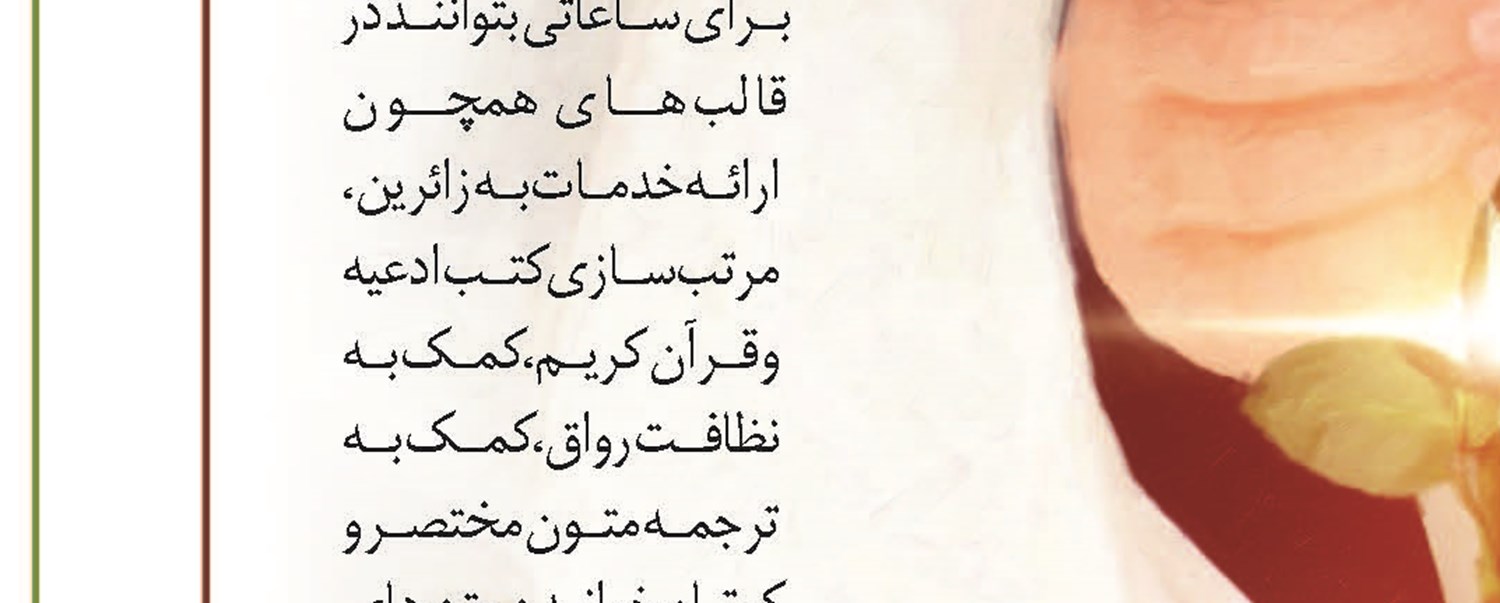 برای ساعاتی بتوانند در
قالب‌های همچون
ارائه خدمات به زائرین،
مرتب‌سازی کتب ادعیه
و قرآن کریم، کمک به
نظافت رواق، کمک به
ترجمه متون مختصر و